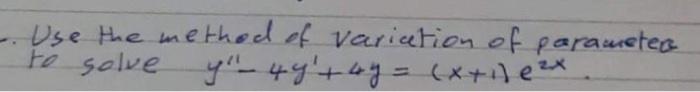 -. Use the method of variation of parameter
to solve y'' - 4y' + 4y = (x+1) e^{2x}.